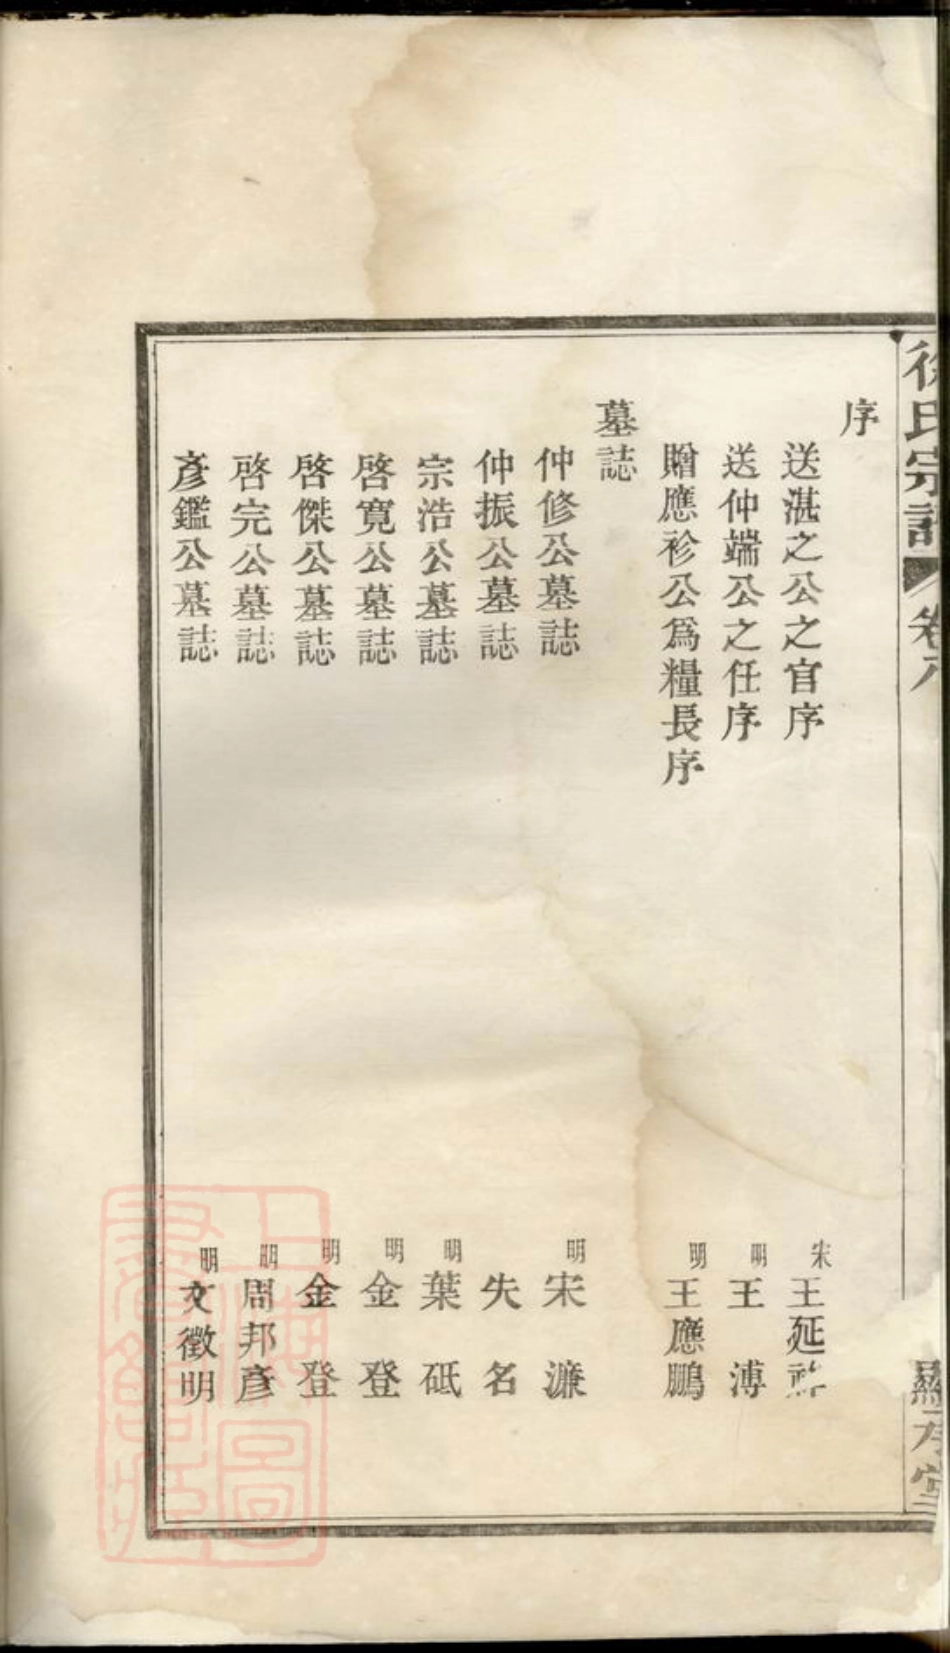 徐氏宗譜 卷
序
送湛之公之官序 宋 王延
送仲端公之任序 明 王溥
贈應衫公爲糧長序 明 王應鵬
墓誌
仲修公墓誌 明 宋濂
仲振公墓誌 失名
宗浩公墓誌 明 葉砥
啓寬公墓誌 明 金登
啓傑公墓誌 明 金登
啓完公墓誌 明 周邦彥
彥鑑公墓誌 明 文徵明
堂
上海圖書館藏